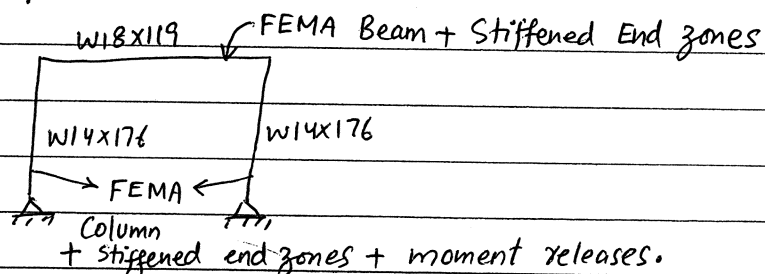 W18X119 FEMA Beam + Stiffened End zones
W14X176 W14X176
FEMA
Column
+ stiffened end zones + moment releases.